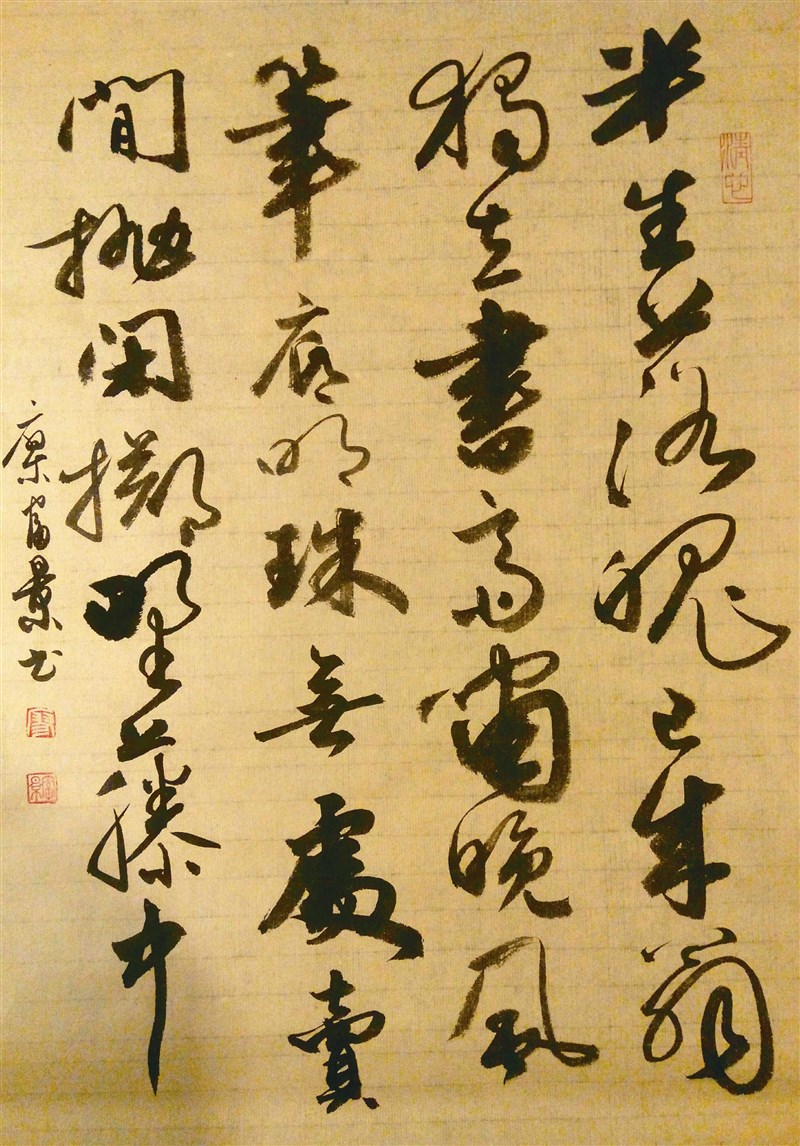 半生落魄已成翁
獨立書齋嘯晚風
筆底明珠無處賣
閒拋閑擲野藤中
富景书